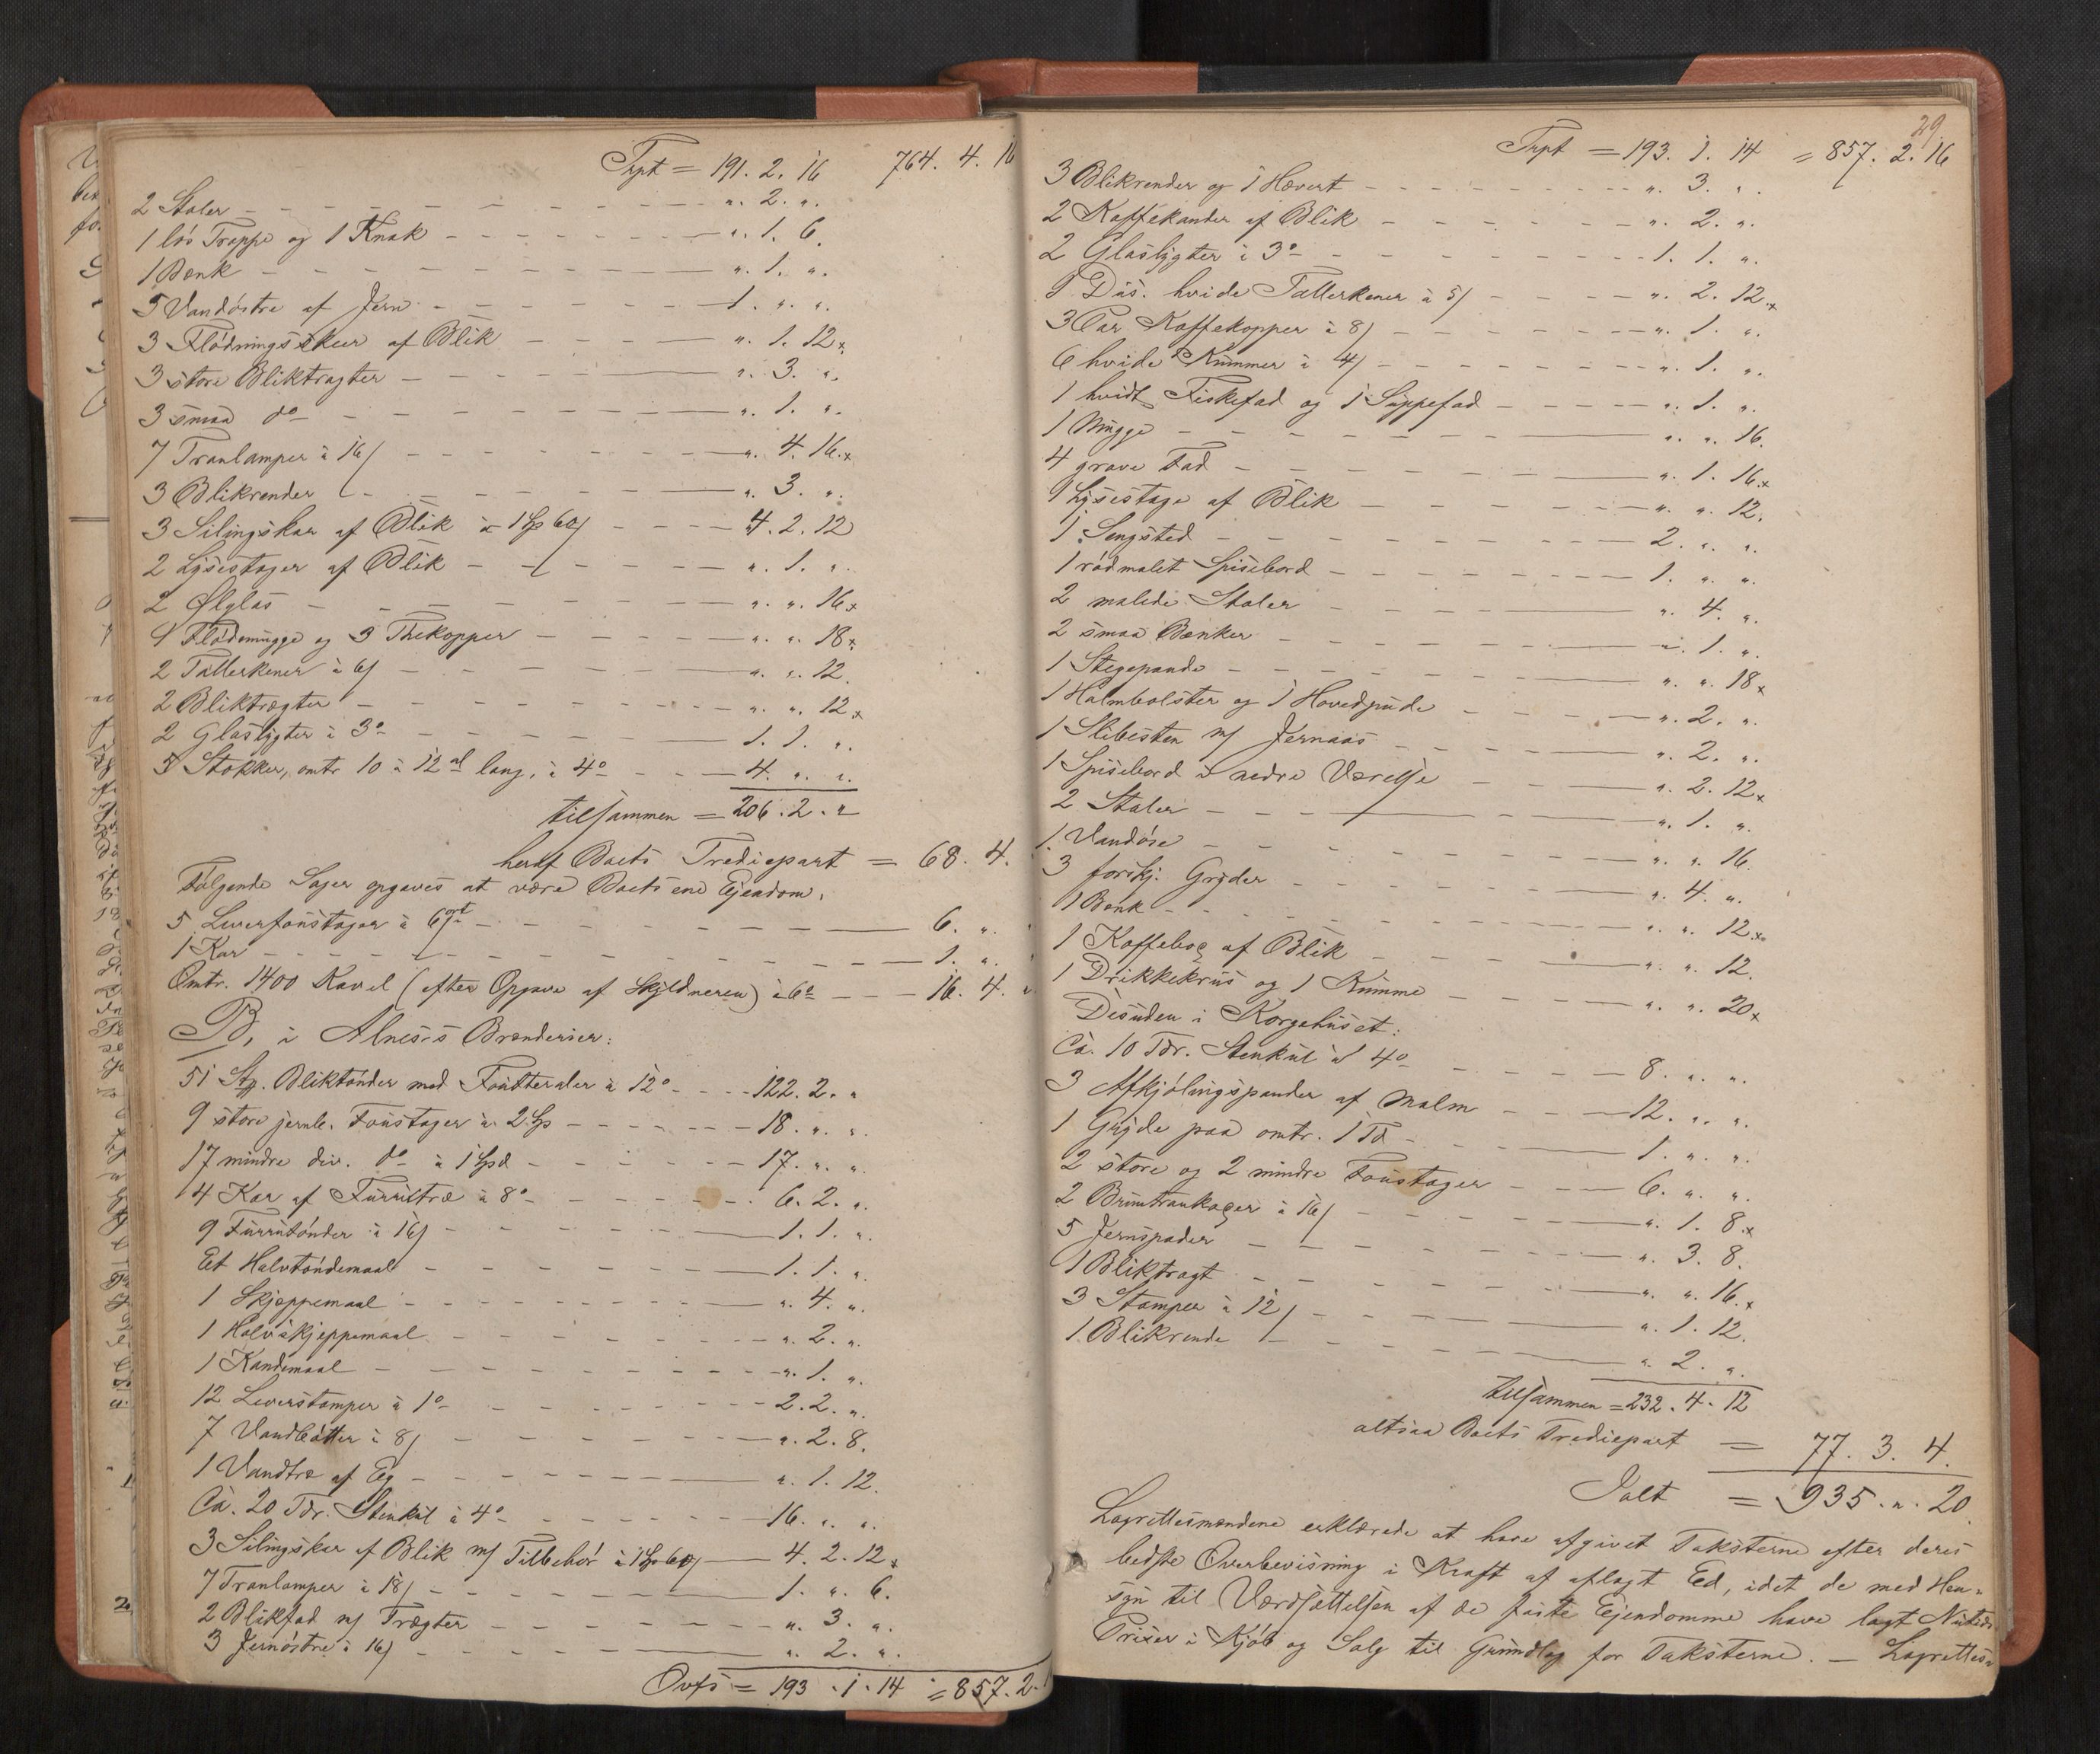 Trpt = 191. 2. 16 764. 4. 16
2 Stoler - - - - „. 2. „.
1 lös Trappe og 1 Knak - - - - „. 1. 6.
1 Bænk - - - - „. 1. „.
5 Vandöstre af Jern - - - - 1. „. „.
3 Flödningsskeer af Blik - - - - „. 1. 12
3 store Bliktragter - - - - „. 3. „.
3 smaa do - - - - „. 1. „.
7 Tranlamper à 16/ - - - - „. 4. 16
3 Blikrender - - - - „. 3. „.
3 Silingskar af Blik à 1 Sp 60/ - - - - 4. 2. 12
2 Lysestager af Blik - - - - „. 1. „.
2 Ølglas - - - - „. „. 16
1 Flödemugge og 3 Thekopper - - - - „. „. 18
2 Tallerkener à 6/ - - - - „. „. 12.
2 Bliktrægter - - - - „. „. 12
2 Glaslygter à 3o - - - - 1. 1. „.
5 Stokker, omtr 10 à 12 al lang, à 4o - - - - 4. „. „.
tilsammen = 206. 2. „
heraf Boets Trediepart = 68. 4.
Følgende Sager opgaves at være Boets ene Ejendom.
5 Leverfoustager à 6 ort - - - - 6. „.
1 Kar - - - - 1. „.
Omtr. 1400 Kavel (efter Opgave af Skyldneren) à 6o - - - - 16. 4. „
B, i Alnes's Brænderier:
51 Stk. Bliktönder med Foutteraler à 12o - - - - 122. 2. „
9 store jernb. Foustager à 2 Sp - - - - 18. „. „.
17 mindre div. do à 1 Spd - - - - 17. „. „.
4 Kar af Furutræ à 8o - - - - 6. 2. „.
9 Furutönder à 16/ - - - - 1. 1. „.
Et Halvtöndemaal - - - - 1. 1. „.
1 Skjæppemaal - - - - „. 4. „.
1 Halvskjeppemaal - - - - „. 2. „.
1 Kandemaal - - - - „. 1. „.
12 Leverstamper à 1o - - - - 2. 2. „.
7 Vandbötter à 8/ - - - - „. 2. 8.
1 Vandtræ af Eg - - - - „. 1. 12.
Ca. 20 Tdr. Stenkul à 4o - - - - 16. „. „.
3 Silingskar af Blik m/ Tilbehör à 1 Sp 60/ - - 4. 2. 12
7 Tranlamper à 18/ - - - - 1. „. 6.
2 Blikfad m/ Trægter - - - - „. 3. „.
3 Jernöstre à 16/ - - - - „. 2. „.
Ovfs = 193. 1. 14 = 857. 2. 1
29
Trpt = 193. 1. 14 = 857. 2. 16
3 Blikrender og 1 Hævert - - - - „. 3. „.
2 Kaffekander af Blik - - - - „. 2. „.
2 Glaslygter à 3o - - - - 1. 1. „.
1 Dus. hvide Tallerkener à 5/ - - - - „. 2. 12
3 Par Kaffekopper à 8/ - - - - „. 1. „.
6 hvide Kummer à 4/ - - - - „. 1. „.
1 hvidt Fiskefad og 1 Suppefad - - - - „. 1. „.
1 Mugge - - - - „. „. 16.
4 grove Fad - - - - „. 1. 16
1 Lysestage af Blik - - - - „. „. 12.
1 Sengsted - - - - 2. „. „.
1 rödmalet Spisebord - - - - 1. „. „.
2 malede Stoler - - - - „. 4. „.
2 smaa Bænker - - - - „. 1. „.
1 Stegepande - - - - „. „. 18
1 Halmbolster og 1 Hovedpude - - - - „. 2. „.
1 Slibesten m/ Jernaas - - - - „. 2. „.
1 Spisebord i nedre Værelse - - - - „. 2. 12
2 Stoler - - - - „. 1. „.
1 Vandöse - - - - „. „. 16.
3 forskj. Gryder - - - - „. 4. „.
1 Bænk - - - - „. „. 12
1 Kaffebog af Blik - - - - „. „. 12.
1 Drikkekrus og 1 Kumme - - - - „. „. 20
Desuden i Korgehuset:
Ca. 10 Tdr. Stenkul à 4o - - - - 8. „. „.
3 Afkjölingspander af Malm - - - - 12. „. „.
1 Gryde paa omtr. 1 Td - - - - 1. „. „.
2 store og 2 mindre Foustager - - - - 6. „. „.
2 Bruntrankager à 16/ - - - - „. 1. 8
5 Jernspader - - - - „. 3. 8.
1 Bliktragt - - - - „. „. 16.
3 Stamper à 12/ - - - - „. 1. 12.
1 Blikrende - - - - „. 2. „.
tilsammen = 232. 4. 12
altsaa Boets Trediepart = 77. 3. 4.
Ialt = 935. „. 20.
Lagrettesmændene erklærede at have afgivet Taksterne efter deres
bedste Overbevisning i Kraft af aflagt Ed, idet de med Hen-
syn til Værdsættelsen af de faste Ejendomme have lagt Nutids
Priser i Kjöb og Salg til Grundlag for Taksterne. — Lagrettes-